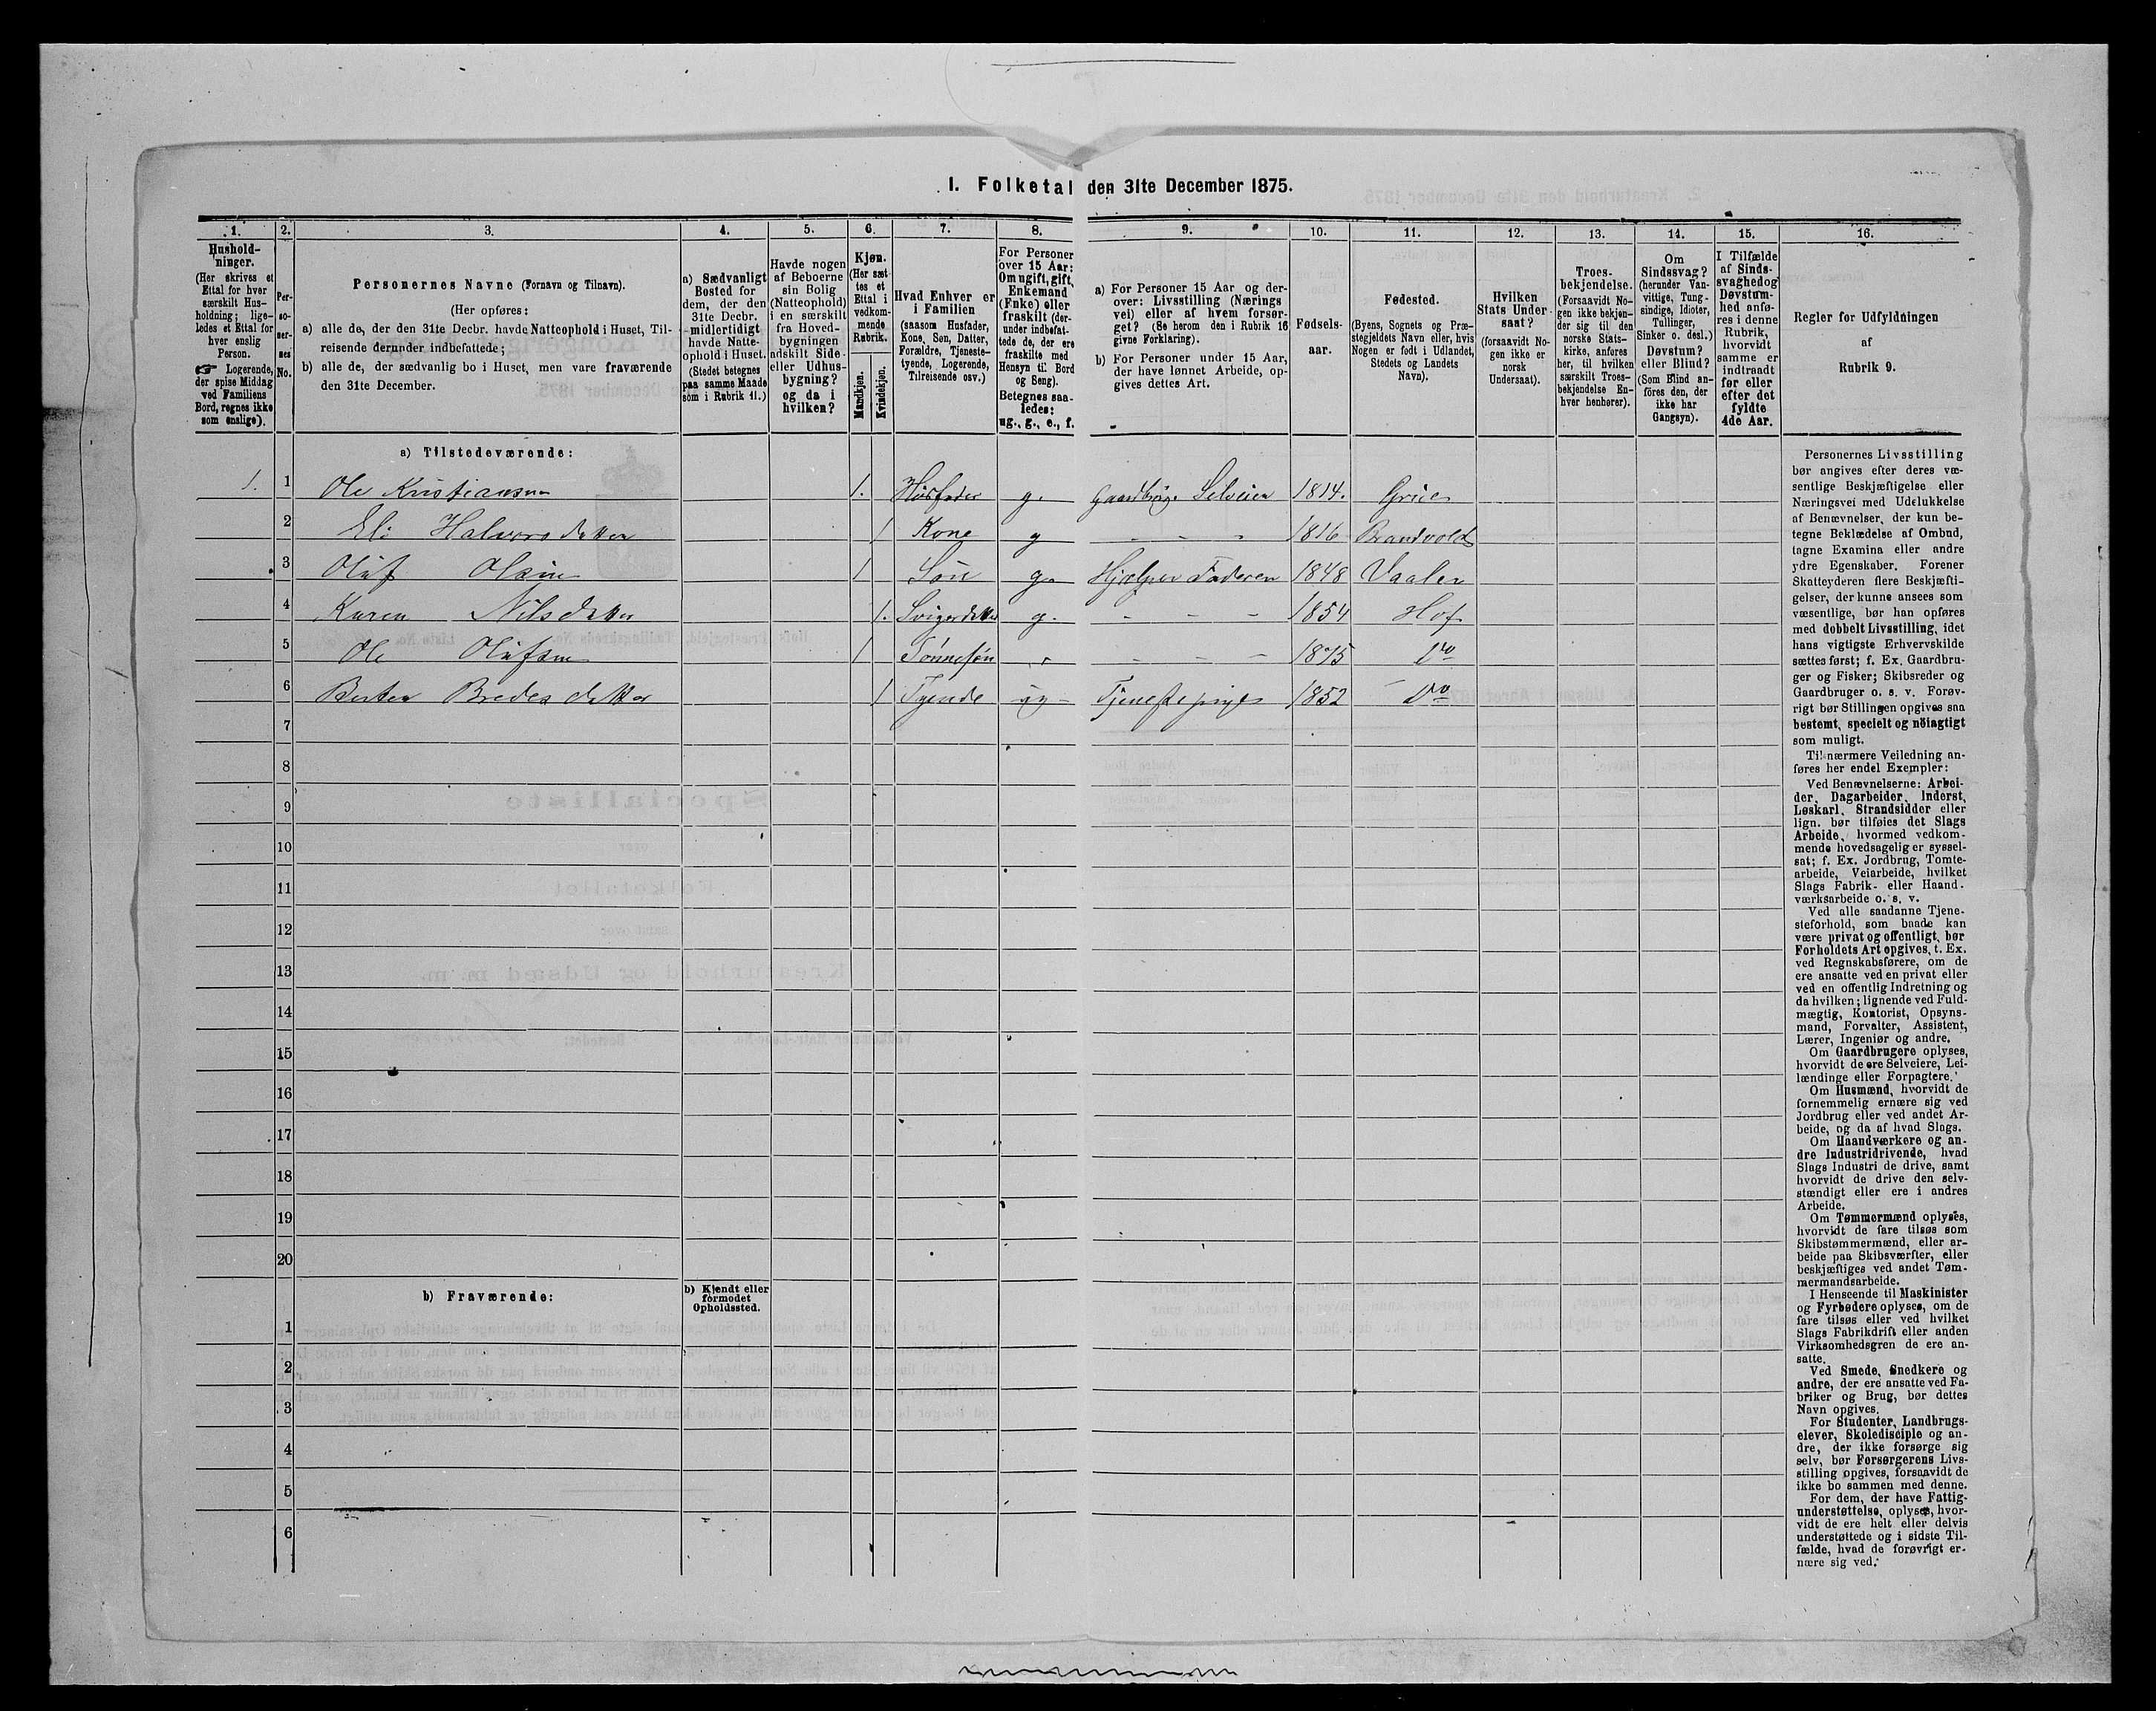 I. Folketal den 31te December 1875.
1.
Hushold-
ninger.
(Her skrives et
Ettal for hver
særskilt Hus-
holdning; lige-
ledes et Ettal for
hver enslig
Person.
☞ Logerende,
der spise Middag
ved Familiens
Bord, regnes ikke
som enslige).
2.
Per-
so-
ner-
nes
No.
3.
Personernes Navne (Fornavn og Tilnavn).
(Her opføres:
a) alle de, der den 31te Decbr. havde Natteophold i Huset, Til-
reisende derunder indbefattede;
b) alle de, der sædvanlig bo i Huset, men vare fraværende
den 31te December.
4.
a) Sædvanligt
Bosted for
dem, der den
31te Decbr.
midlertidigt
havde Natte-
ophold i Huset.
(Stedet betegnes
paa samme Maade
som i Rubrik 11.)
5.
Havde nogen
af Beboerne
sin Bolig
(Natteophold)
i en særskilt
fra Hoved-
bygningen
adskilt Side-
eller Udhus-
bygning?
og da i
hvilken?
6.
Kjøn.
(Her sæt-
tes et
Ettal i
vedkom-
mende
Rubrik.
Mandkjøn.
Kvindekjøn.
7.
Hvad Enhver er
i Familien
(saasom Husfader,
Kone, Søn, Datter,
Forældre, Tjeneste-
tyende, Logerende,
Tilreisende osv.)
8.
For Personer
over 15 Aar:
Om ugift, gift,
Enkemand
(Enke) eller
fraskilt (der-
under indbefat-
tede de, der ere
fraskilte med
Hensyn til Bord
og Seng).
Betegnes saa-
ledes:
ug., g., e., f.
9.
a) For Personer 15 Aar og der-
over: Livsstilling (Nærings
vei) eller af hvem forsør-
get? (Se herom den i Rubrik 16
givne Forklaring).
b) For Personer under 15 Aar,
der have lønnet Arbeide, op-
gives dettes Art.
10.
Fødsels-
aar.
11.
Fødested.
(Byens, Sognets og Præ-
stegjeldets Navn eller, hvis
Nogen er født i Udlandet,
Stedets og Landets
Navn).
12.
Hvilken
Stats Under
saat?
(forsaavidt No-
gen ikke er
norsk
Undersaat).
13.
Troes-
bekjendelse.
(Forsaavidt No-
gen ikke bekjen-
der sig til den
norske Stats-
kirke, anføres
her, til hvilken
særskilt Troes-
bekjendelse En-
hver henhører).
14.
Om
Sindssvag?
(herunder Van-
vittige, Tung-
sindige, Idioter,
Tullinger,
Sinker o. desl.)
Døvstum?
eller Blind?
(Som Blind an-
føres den, der
ikke har
Gangsyn).
15.
I Tilfælde
af Sinds-
svaghed og
Døvstum-
hed anfø-
res i denne
Rubrik,
hvorvidt
samme er
indtraadt
før eller
efter det
fyldte
4de Aar.
16.
Regler for Udfyldningen
af
Rubrik 9.
a) Tilstedeværende:
1. 1 Ole Kristiansen 1. Husfader g. Gaardbrug Selveier 1814. Grue
2 Eli Halvorsdatter 1 Kone g - - - 1816 Brandvold
3 Oluf Olsen 1 Søn g. Hjælper Faderen 1848 Vaaler
4 Karen Nilsdatter 1. Svigerdatter g. - - - 1854 Hof
5 Ole Olufsen 1 Sønnesøn - - - 1875 Do
6 Berte Bredesdatter 1 Tyende ug Tjenestepige 1852 Do
7
8
9
10
11
12
13
14
15
16
17
18
19
20
b) Fraværende:
b) Kjendt eller
formodet
Opholdssted.
1
2
3
4
5
6
Personernes Livsstilling
bør angives efter deres væ-
sentlige Beskjæftigelse eller
Næringsvei med Udelukkelse
af Benævnelser, der kun be-
tegne Beklædelse af Ombud,
tagne Examina eller andre
ydre Egenskaber. Forener
Skatteyderen flere Beskjæfti-
gelser, der kunne ansees som
væsentlige, bør han opføres
med dobbelt Livsstilling, idet
hans vigtigste Erhvervskilde
sættes først; f. Ex. Gaardbru-
ger og Fisker; Skibsreder og
Gaardbruger o. s. v. Forøv-
rigt bør Stillingen opgives saa
bestemt, specielt og nøiagtigt
som muligt.
Til nærmere Veiledning an-
føres her endel Exempler:
Ved Benævnelserne: Arbei-
der, Dagarbeider, Inderst,
Løskarl, Strandsidder eller
lign. bør tilføies det Slags
Arbeide, hvormed vedkom-
mende hovedsagelig er syssel-
sat; f. Ex. Jordbrug, Tomte-
arbeide, Veiarbeide, hvilket
Slags Fabrik- eller Haand-
værksarbeide o. s. v.
Ved alle saadanne Tjene-
steforhold, som baade kan
være privat og offentligt, bør
Forholdets Art opgives, t. Ex.
ved Regnskabsførere, om de
ere ansatte ved en privat eller
ved en offentlig Indretning og
da hvilken; lignende ved Fuld-
mægtig, Kontorist, Opsyns-
mand, Forvalter, Assistent,
Lærer, Ingeniør og andre.
Om Gaardbrugere oplyses,
hvorvidt de ere Selveiere, Lei-
lændinge eller Forpagtere.
Om Husmænd, hvorvidt de
fornemmelig ernære sig ved
Jordbrug eller ved andet Ar-
beide, og da af hvad Slags.
Om Haandværkere og an-
dre Industridrivende, hvad
Slags Industri de drive, samt
hvorvidt de drive den selv-
stændigt eller ere i andres
Arbeide.
Om Tømmermænd oplyses,
hvorvidt de fare tilsøs som
Skibstømmermænd, eller ar-
beide paa Skibsværfter, eller
beskjæftiges ved andet Tøm-
mermandsarbeide.
I Henseende til Maskinister
og Fyrbødere oplyses, om de
fare tilsøs eller ved hvilket
Slags Fabrikdrift eller anden
Virksomhedsgren de ere an-
satte.
Ved Smede, Snedkere og
andre, der ere ansatte ved Fa-
briker og Brug, bør dettes
Navn opgives.
For Studenter, Landbrugs-
elever, Skoledisciple og an-
dre, der ikke forsørge sig
selv, bør Forsørgerens Livs-
stilling opgives, forsaavidt de
ikke bo sammen med denne.
For dem, der have Fattig-
understøttelse, oplyses, hvor-
vidt de ere helt eller delvis
understøttede og i sidste Til-
fælde, hvad de forøvrigt er-
nære sig ved.